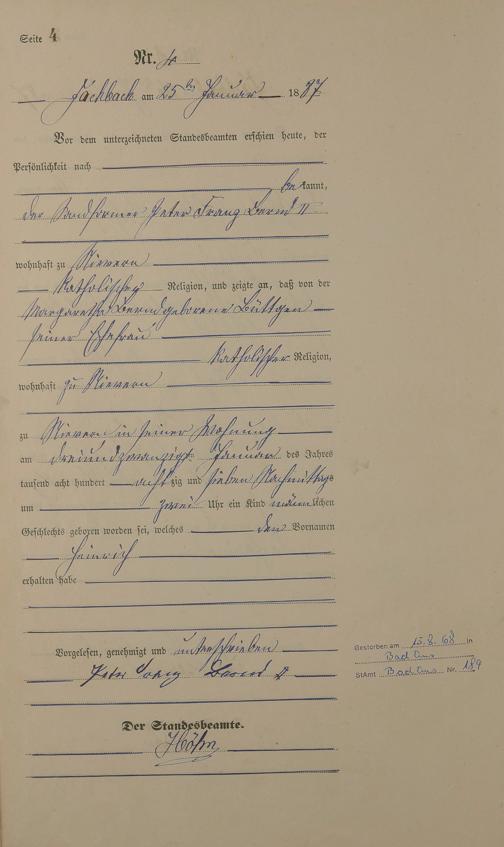 Seite 4
Nr. 4
Fachbach am 25ten Januar 1887
Vor dem unterzeichneten Standesbeamten erschien heute, der
Persönlichkeit nach
bekannt,
der Sandformer Peter Franz Bernd II
wohnhaft zu Nievern
katholischer Religion, und zeigte an, daß von der
Margaretha Bernd geborene Büttgen
seiner Ehefrau
katholischer Religion,
wohnhaft zu Nievern
zu Nievern in seiner Wohnung
am dreiundzwanzigten Januar des Jahres
tausend acht hundert achtzig und sieben Nachmittags
um zwei Uhr ein Kind männlichen
Geschlechts geboren worden sei, welches den Vornamen
Heinrich
erhalten habe
Vorgelesen, genehmigt und unterschrieben
Peter Franz Bernd II
Der Standesbeamte.
Höhn
Gestorben am 15.8.68 in
Bad Ems
StAmt Bad Ems Nr. 189